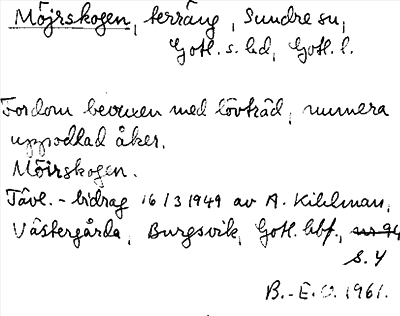 Möjrskogen, terräng, Sundre sn,
Gotl. s. hd, Gotl. l.
Fordom bevuxen med lövträd, numera
uppodlad åker.
Möirskogen.
Tävl.-bidrag 16/3 1949 av A. Kihlman,
Västergårda, Burgsvik, Gotl. hbf.,
s. 4
B.-E.O. 1961.